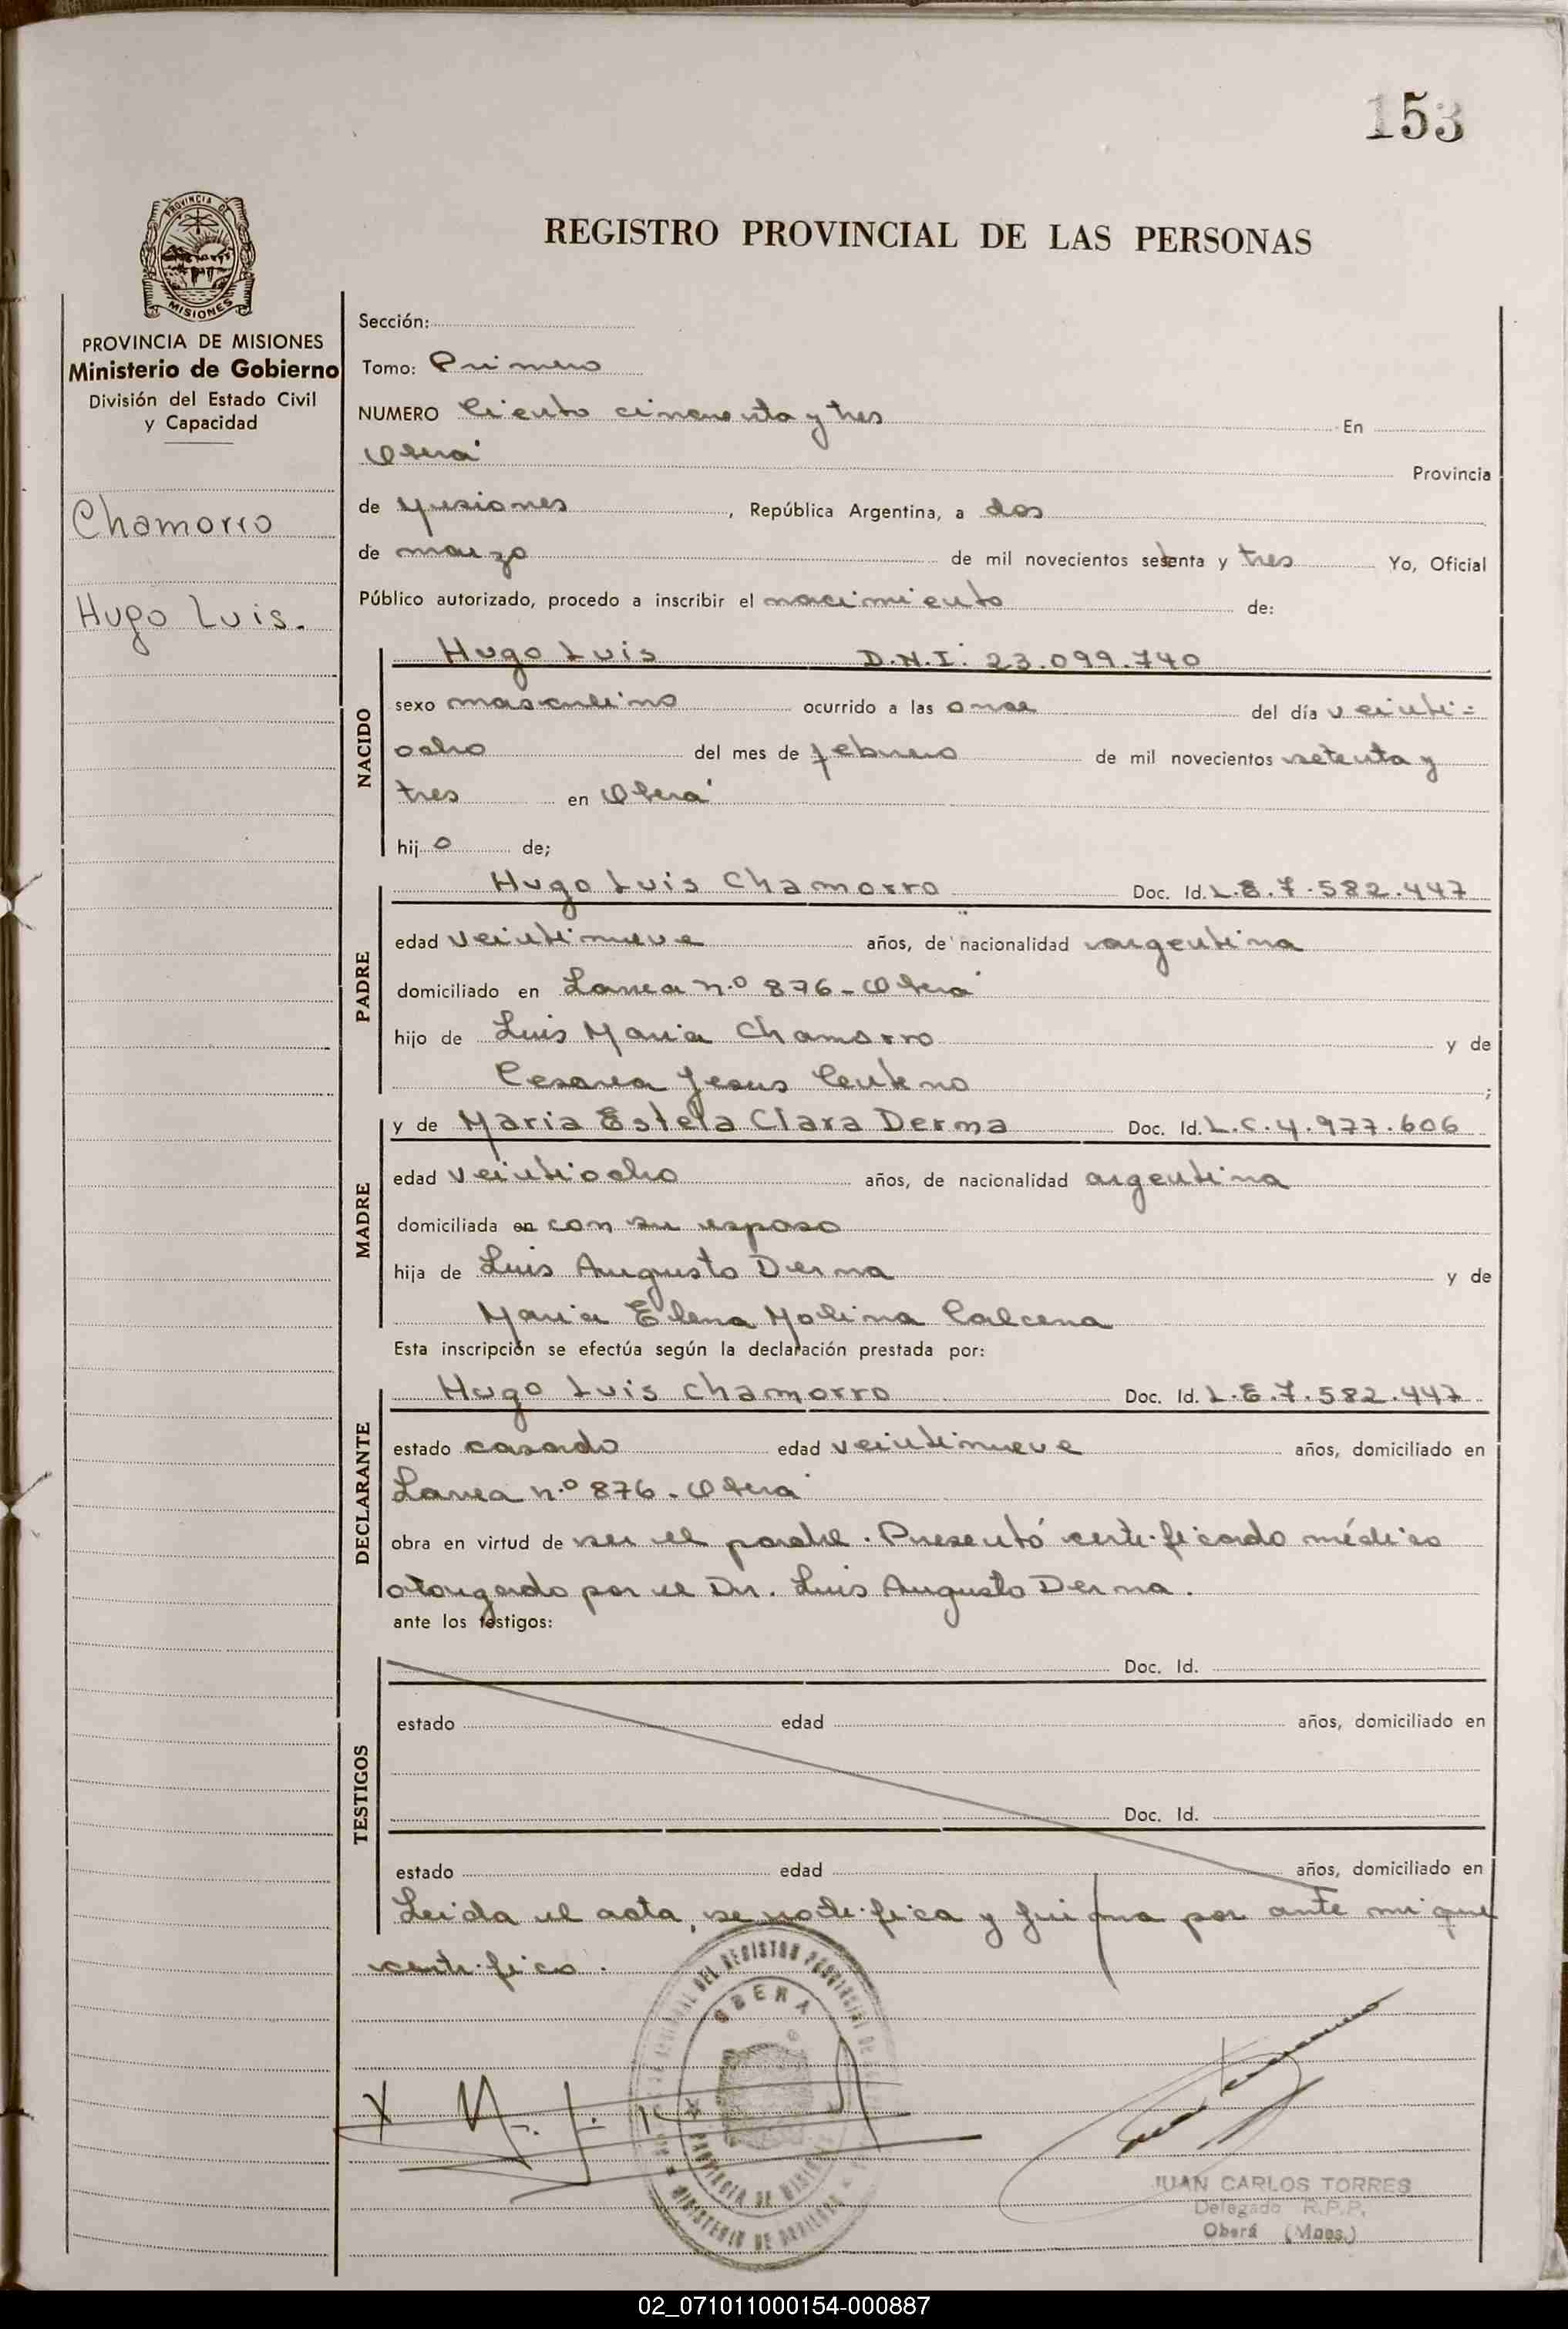 153
PROVINCIA DE
MISIONES
REGISTRO PROVINCIAL DE LAS PERSONAS
PROVINCIA DE MISIONES
Ministerio de Gobierno
División del Estado Civil
y Capacidad
Chamorro
Hugo Luis.
Sección:
Tomo: Primero
NUMERO Ciento cincuenta y tres En
Oberá Provincia
de Misiones, República Argentina, a dos
de marzo de mil novecientos setenta y tres Yo, Oficial
Público autorizado, procedo a inscribir el nacimiento de:
NACIDO
Hugo Luis D.N.I. 23.099.740
sexo masculino ocurrido a las once del día veinti=
ocho del mes de febrero de mil novecientos setenta y
tres en Oberá
hijo de;
PADRE
Hugo Luis Chamorro Doc. Id. L.E.7.582.447
edad veintinueve años, de nacionalidad argentina
domiciliado en n.º 876 - Oberá
hijo de Luis Maria Chamorro y de
Cesarea Jesus Centeno;
MADRE
y de Maria Estela Clara Derna Doc. Id. L.C.4.977.606
edad veintiocho años, de nacionalidad argentina
domiciliada en con su esposo
hija de Luis Augusto Derna y de
Maria Elena Molina Calcena
Esta inscripción se efectúa según la declaración prestada por:
DECLARANTE
Hugo Luis Chamorro Doc. Id. L.E.7.582.447
estado casado edad veintinueve años, domiciliado en
n.º 876 - Oberá
obra en virtud de ser el padre. Presentó certificado médico
otorgado por el Dr. Luis Augusto Derna.
ante los testigos:
TESTIGOS
Doc. Id.
estado edad años, domiciliado en
Doc. Id.
estado edad años, domiciliado en
Leida el acta, se notifica y firma por ante mi que
certifico.
DEL REGISTRO PROVINCIAL DE
OBERA
PROVINCIA DE MISIONES
MINISTERIO DE
JUAN CARLOS TORRES
Delegado R.P.P.
Oberá (Mnes.)
02_071011000154-000887